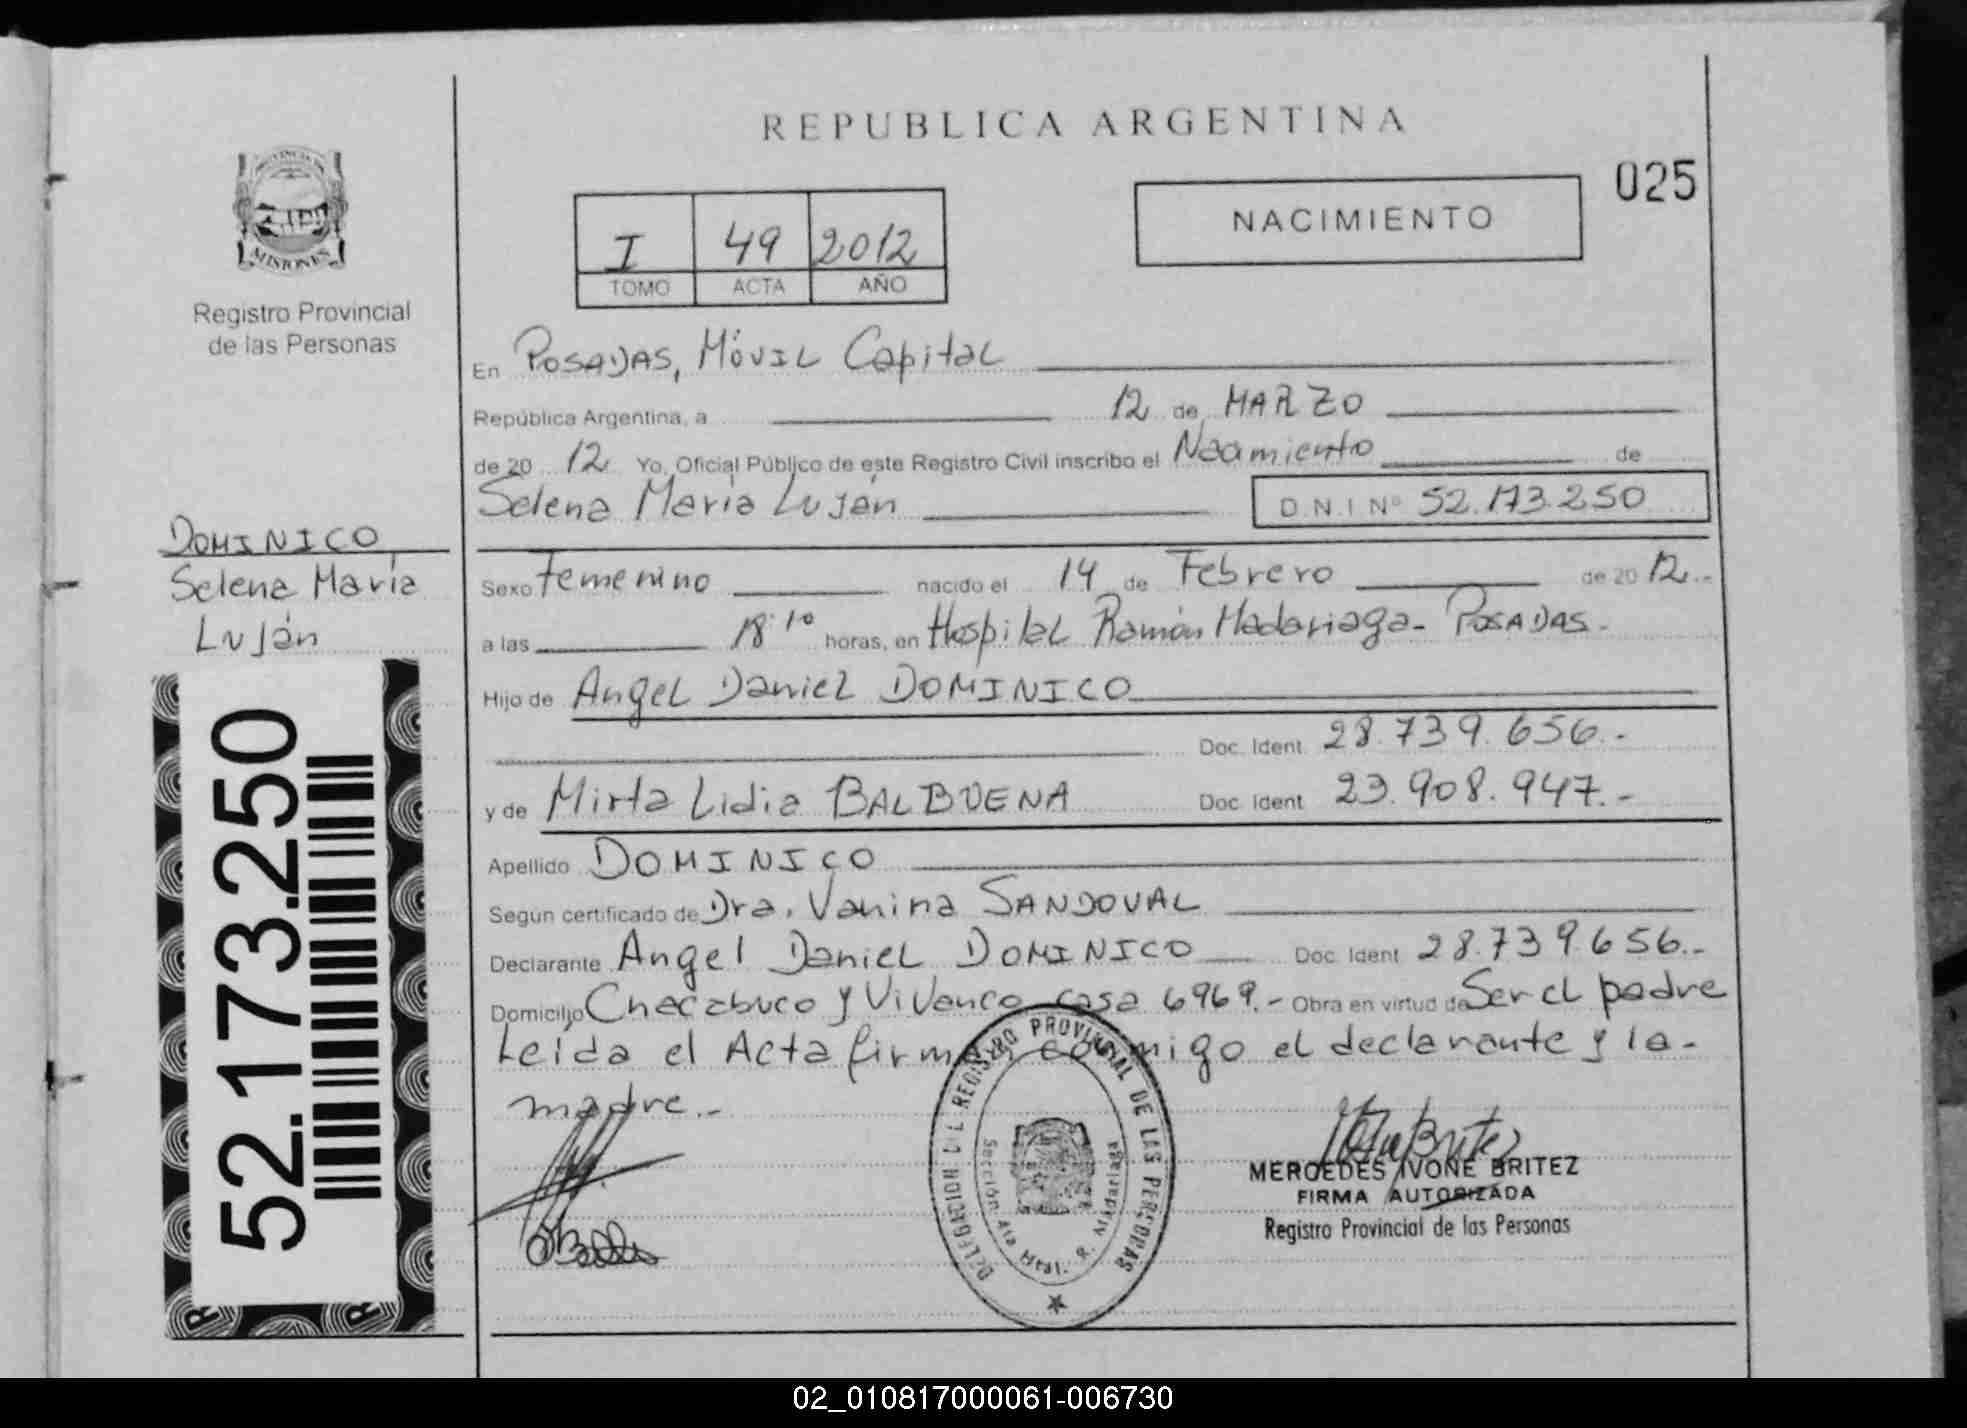 REPUBLICA ARGENTINA
025
NACIMIENTO
I 49 2012
TOMO ACTA AÑO
PROVINCIA DE
MISIONES
Registro Provincial
de las Personas
En POSADAS, MÓVIL Capital
República Argentina, a 12 de MARZO
de 20 12 Yo, Oficial Público de este Registro Civil inscribo el Nacimiento de
Selena María Luján D.N.I Nº 52.173.250
DOMINICO
Selena María
Luján
52.173.250
Sexo Femenino nacido el 14 de Febrero de 20 12.-
a las 18:10 horas, en Hospital Ramón Madariaga- POSADAS.
Hijo de Angel Daniel DOMINICO
Doc. Ident. 28.739.656.-
y de Mirta Lidia BALBUENA Doc. Ident. 23.908.947.-
Apellido DOMINICO
Según certificado de Dra. Vanina SANDOVAL
Declarante Angel Daniel DOMINICO Doc. Ident. 28.739.656.-
Domicilio Chacabuco y Vivanco casa 6969.- Obra en virtud de Ser el padre
Leída el Acta firman conmigo el declarante y la-
madre.-
DELEGACION DEL REGISTRO PROVINCIAL DE LAS PERSONAS
Sección 4ta Htal. R. Madariaga
MERCEDES IVONE BRITEZ
FIRMA AUTORIZADA
Registro Provincial de las Personas
02_010817000061-006730